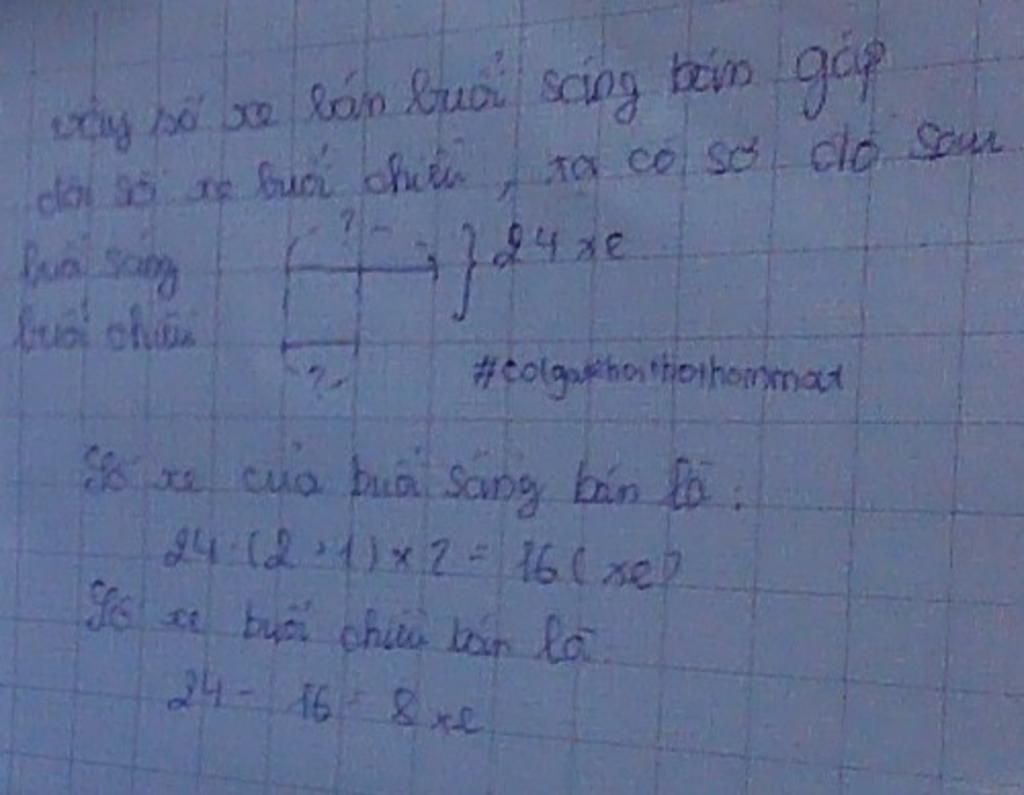 vậy số xe bán buổi sáng bán gấp
đôi số xe buổi chiều, ta có sơ đồ sau
buổi sáng ? } 24 xe
buổi chiều
?
Số xe của buổi sáng bán là :
24 : (2 + 1) x 2 = 16 ( xe)
Số xe buổi chiều bán là
24 - 16 = 8 xe